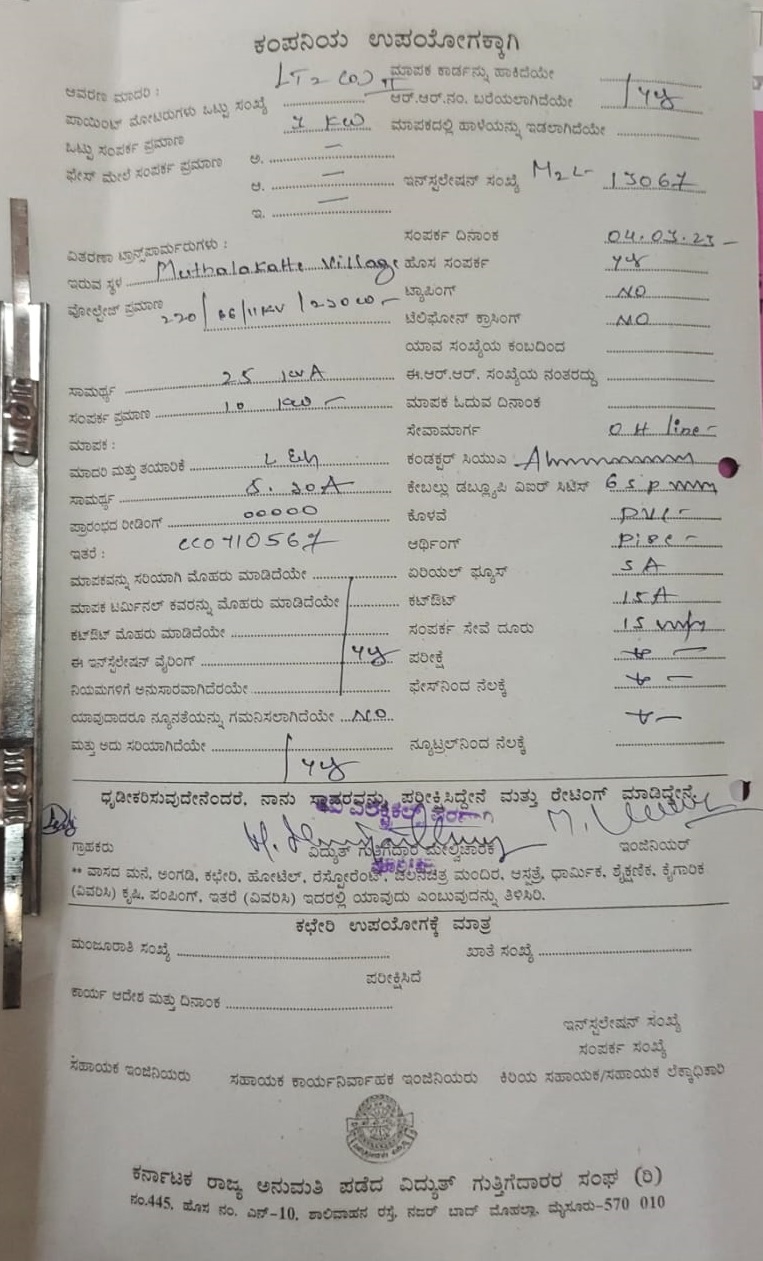 ಕಂಪನಿಯ ಉಪಯೋಗಕ್ಕಾಗಿ
ಆವರಣ ಮಾದರಿ : LT2 ಮಾಪಕ ಕಾರ್ಡನ್ನು ಹಾಕಿದೆಯೇ
ಪಾಯಿಂಟ್ ಮೋಟರುಗಳು ಒಟ್ಟು ಸಂಖ್ಯೆ ಆರ್.ಆರ್.ನಂ. ಬರೆಯಲಾಗಿದೆಯೇ
ಒಟ್ಟು ಸಂಪರ್ಕ ಪ್ರಮಾಣ 1 KW ಮಾಪಕದಲ್ಲಿ ಹಾಳೆಯನ್ನು ಇಡಲಾಗಿದೆಯೇ
ಫೇಸ್ ಮೇಲೆ ಸಂಪರ್ಕ ಪ್ರಮಾಣ ಅ. —
ಆ. — ಇನ್‌ಸ್ಟಲೇಷನ್ ಸಂಖ್ಯೆ M2L- 13067
ಇ. —
ವಿತರಣಾ ಟ್ರಾನ್ಸ್‌ಪಾರ್ಮರುಗಳು : ಸಂಪರ್ಕ ದಿನಾಂಕ 04.03.23
ಇರುವ ಸ್ಥಳ Muthalakatte Village ಹೊಸ ಸಂಪರ್ಕ
ವೋಲ್ಟೇಜ್ ಪ್ರಮಾಣ 220/66/11KV ಟ್ಯಾಪಿಂಗ್ NO
ಟೆಲಿಫೋನ್ ಕ್ರಾಸಿಂಗ್ NO
ಯಾವ ಸಂಖ್ಯೆಯ ಕಂಬದಿಂದ
ಸಾಮರ್ಥ್ಯ 25 KVA ಈ.ಆರ್.ಆರ್. ಸಂಖ್ಯೆಯ ನಂತರದ್ದು
ಸಂಪರ್ಕ ಪ್ರಮಾಣ 10 KW ಮಾಪಕ ಓದುವ ದಿನಾಂಕ
ಮಾಪಕ : ಸೇವಾಮಾರ್ಗ OH line
ಮಾದರಿ ಮತ್ತು ತಯಾರಿಕೆ ಕಂಡಕ್ಟರ್ ಸಿಯುಎ
ಸಾಮರ್ಥ್ಯ 5.20A ಕೇಬಲ್ಲು ಡಬ್ಲ್ಯೂಪಿ ವಿಐಆರ್ ಸಿಟಿಸ್
ಪ್ರಾರಂಭದ ರೀಡಿಂಗ್ 00000 ಕೊಳವೆ PVC
ಇತರೆ : CC0710567 ಆರ್ಥಿಂಗ್ Pipe
ಮಾಪಕವನ್ನು ಸರಿಯಾಗಿ ಮೊಹರು ಮಾಡಿದೆಯೇ ಏರಿಯಲ್ ಫ್ಯೂಸ್ 5A
ಮಾಪಕ ಟರ್ಮಿನಲ್ ಕವರನ್ನು ಮೊಹರು ಮಾಡಿದೆಯೇ ಕಟ್‌ಔಟ್ 15A
ಕಟ್‌ಔಟ್ ಮೊಹರು ಮಾಡಿದೆಯೇ ಸಂಪರ್ಕ ಸೇವೆ ದೂರು 15
ಈ ಇನ್‌ಸ್ಟಲೇಷನ್ ವೈರಿಂಗ್ ಪರೀಕ್ಷೆ
ನಿಯಮಗಳಿಗೆ ಅನುಸಾರವಾಗಿದೆರಯೇ ಫೇಸ್‌ನಿಂದ ನೆಲಕ್ಕೆ
ಯಾವುದಾದರೂ ನ್ಯೂನತೆಯನ್ನು ಗಮನಿಸಲಾಗಿದೆಯೇ NO
ಮತ್ತು ಅದು ಸರಿಯಾಗಿದೆಯೇ ನ್ಯೂಟ್ರಲ್‌ನಿಂದ ನೆಲಕ್ಕೆ
ಧೃಡೀಕರಿಸುವುದೇನೆಂದರೆ, ನಾನು ಸ್ಥಾವರವನ್ನು ಪರೀಕ್ಷಿಸಿದ್ದೇನೆ ಮತ್ತು ರೇಟಿಂಗ್ ಮಾಡಿದ್ದೇನೆ.
ಗ್ರಾಹಕರು ವಿದ್ಯುತ್ ಗುತ್ತಿಗೆದಾರ ಮೇಲ್ವಿಚಾರಕ ಇಂಜಿನಿಯರ್
** ವಾಸದ ಮನೆ, ಅಂಗಡಿ, ಕಛೇರಿ, ಹೋಟೆಲ್, ರೆಸ್ಟೋರೆಂಟ್, ಚಲನಚಿತ್ರ ಮಂದಿರ, ಆಸ್ಪತ್ರೆ, ಧಾರ್ಮಿಕ, ಶೈಕ್ಷಣಿಕ, ಕೈಗಾರಿಕ
(ವಿವರಿಸಿ) ಕೃಷಿ, ಪಂಪಿಂಗ್, ಇತರೆ (ವಿವರಿಸಿ) ಇದರಲ್ಲಿ ಯಾವುದು ಎಂಬುವುದನ್ನು ತಿಳಿಸಿರಿ.
ಕಛೇರಿ ಉಪಯೋಗಕ್ಕೆ ಮಾತ್ರ
ಮಂಜೂರಾತಿ ಸಂಖ್ಯೆ ಖಾತೆ ಸಂಖ್ಯೆ
ಪರೀಕ್ಷಿಸಿದೆ
ಕಾರ್ಯ ಆದೇಶ ಮತ್ತು ದಿನಾಂಕ
ಇನ್‌ಸ್ಟಲೇಷನ್ ಸಂಖ್ಯೆ
ಸಂಪರ್ಕ ಸಂಖ್ಯೆ
ಸಹಾಯಕ ಇಂಜಿನಿಯರು ಸಹಾಯಕ ಕಾರ್ಯನಿರ್ವಾಹಕ ಇಂಜಿನಿಯರು ಕಿರಿಯ ಸಹಾಯಕ/ಸಹಾಯಕ ಲೆಕ್ಕಾಧಿಕಾರಿ
ಕರ್ನಾಟಕ ರಾಜ್ಯ ಅನುಮತಿ ಪಡೆದ ವಿದ್ಯುತ್ ಗುತ್ತಿಗೆದಾರರ ಸಂಘ (ರಿ)
ನಂ.445, ಹೊಸ ನಂ. ಎನ್-10, ಶಾಲಿವಾಹನ ರಸ್ತೆ, ನಜರ್ ಬಾದ್ ಮೊಹಲ್ಲಾ, ಮೈಸೂರು-570 010